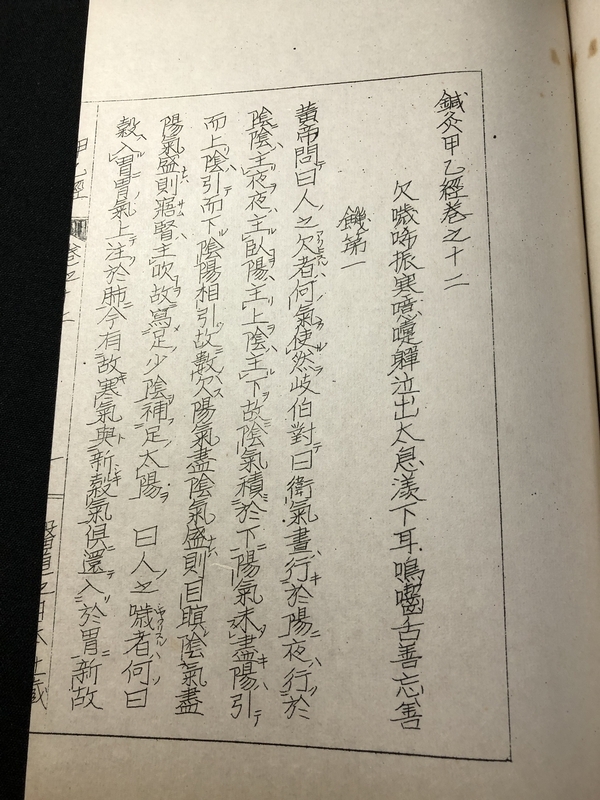 鍼灸甲乙經卷之十二
欠噦唏振寒噫嚏軃泣出太息漾下耳鳴嚙舌善忘善
饑第一
黃帝問曰人之欠者何氣使然歧伯對曰衛氣晝行於陽夜行於
陰陰主夜夜主臥陽主上陰主下故陰氣積於下陽氣未盡陽引
而上陰引而下陰陽相引故數欠陽氣盡陰氣盛則目瞑陰氣盡
陽氣盛則寤腎主吹故寫足少陰補足太陽　曰人之噦者何曰
穀入胃胃氣上注於肺今有故寒氣與新穀氣俱還入於胃新故
甲乙經　卷之十二